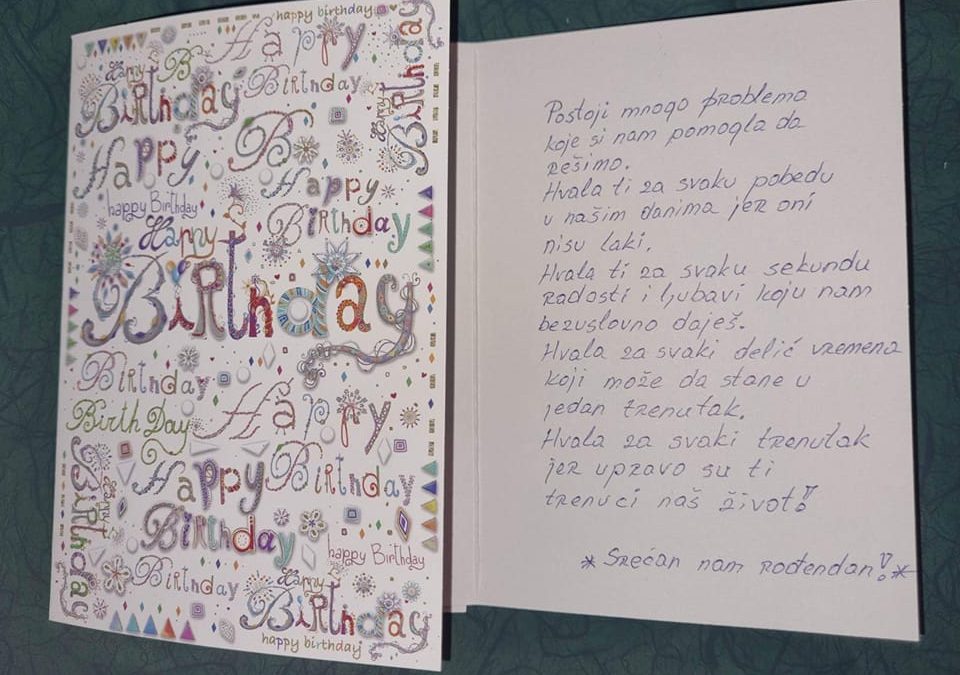 happy birthday
Happy
Birthday
Happy
B
Birthday
Happy
Birthday
Happy
B
Happy
happy Birthday
Birthday
Happy
Birthday
Birthday
Happy
Birth Day
Happy
Birthday
Happy
Birthday
Birthday
happy Birthday
Happy
Birthday
Birthday
Happy
Birthday
happy birthday
Postoji mnogo problema
koje si nam pomogla da
rešimo.
Hvala ti za svaku pobedu
u našim danima jer oni
nisu laki.
Hvala ti za svaku sekundu
radosti i ljubavi koju nam
bezuslovno daješ.
Hvala za svaki delić vremena
koji može da stane u
jedan trenutak.
Hvala za svaki trenutak
jer upravo su ti
trenuci naš život!
*Srećan nam rođendan!*